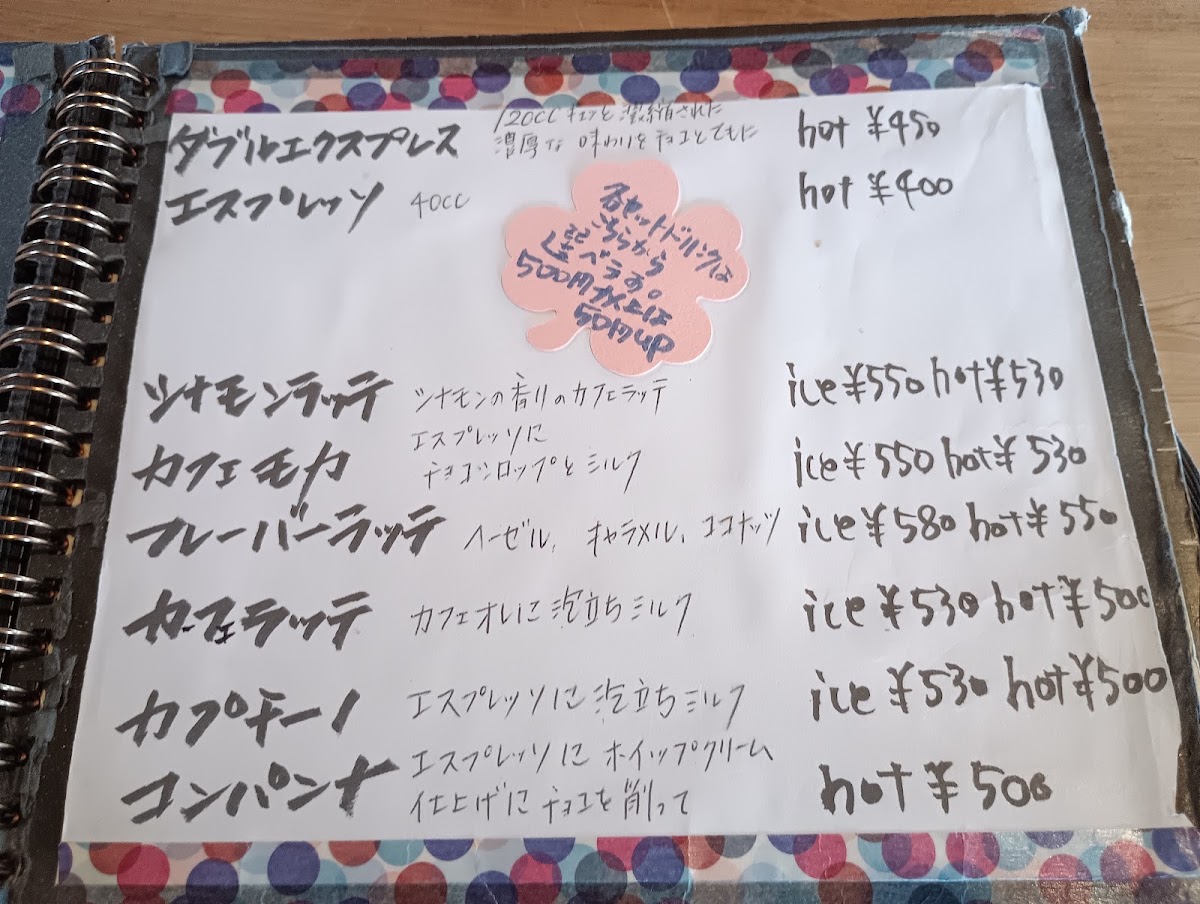 ダブルエクスプレス 120cc キュッと凝縮された hot ¥450
濃厚な味わりをチョコとともに
エスプレッソ 40cc hot ¥400
各セットドリンクは
こちらから
選べます。
500円以上は
50円up
シナモンラッテ シナモンの香りのカフェラッテ ice ¥550 hot ¥530
カフェモカ エスプレッソに
チョコシロップとミルク ice ¥550 hot ¥530
フレーバーラッテ ヘーゼル、キャラメル、ココナッツ ice ¥580 hot ¥550
カフェラッテ カフェオレに泡立ちミルク ice ¥530 hot ¥500
カプチーノ エスプレッソに泡立ちミルク ice ¥530 hot ¥500
コンパンナ エスプレッソにホイップクリーム
仕上げにチョコを削って hot ¥500